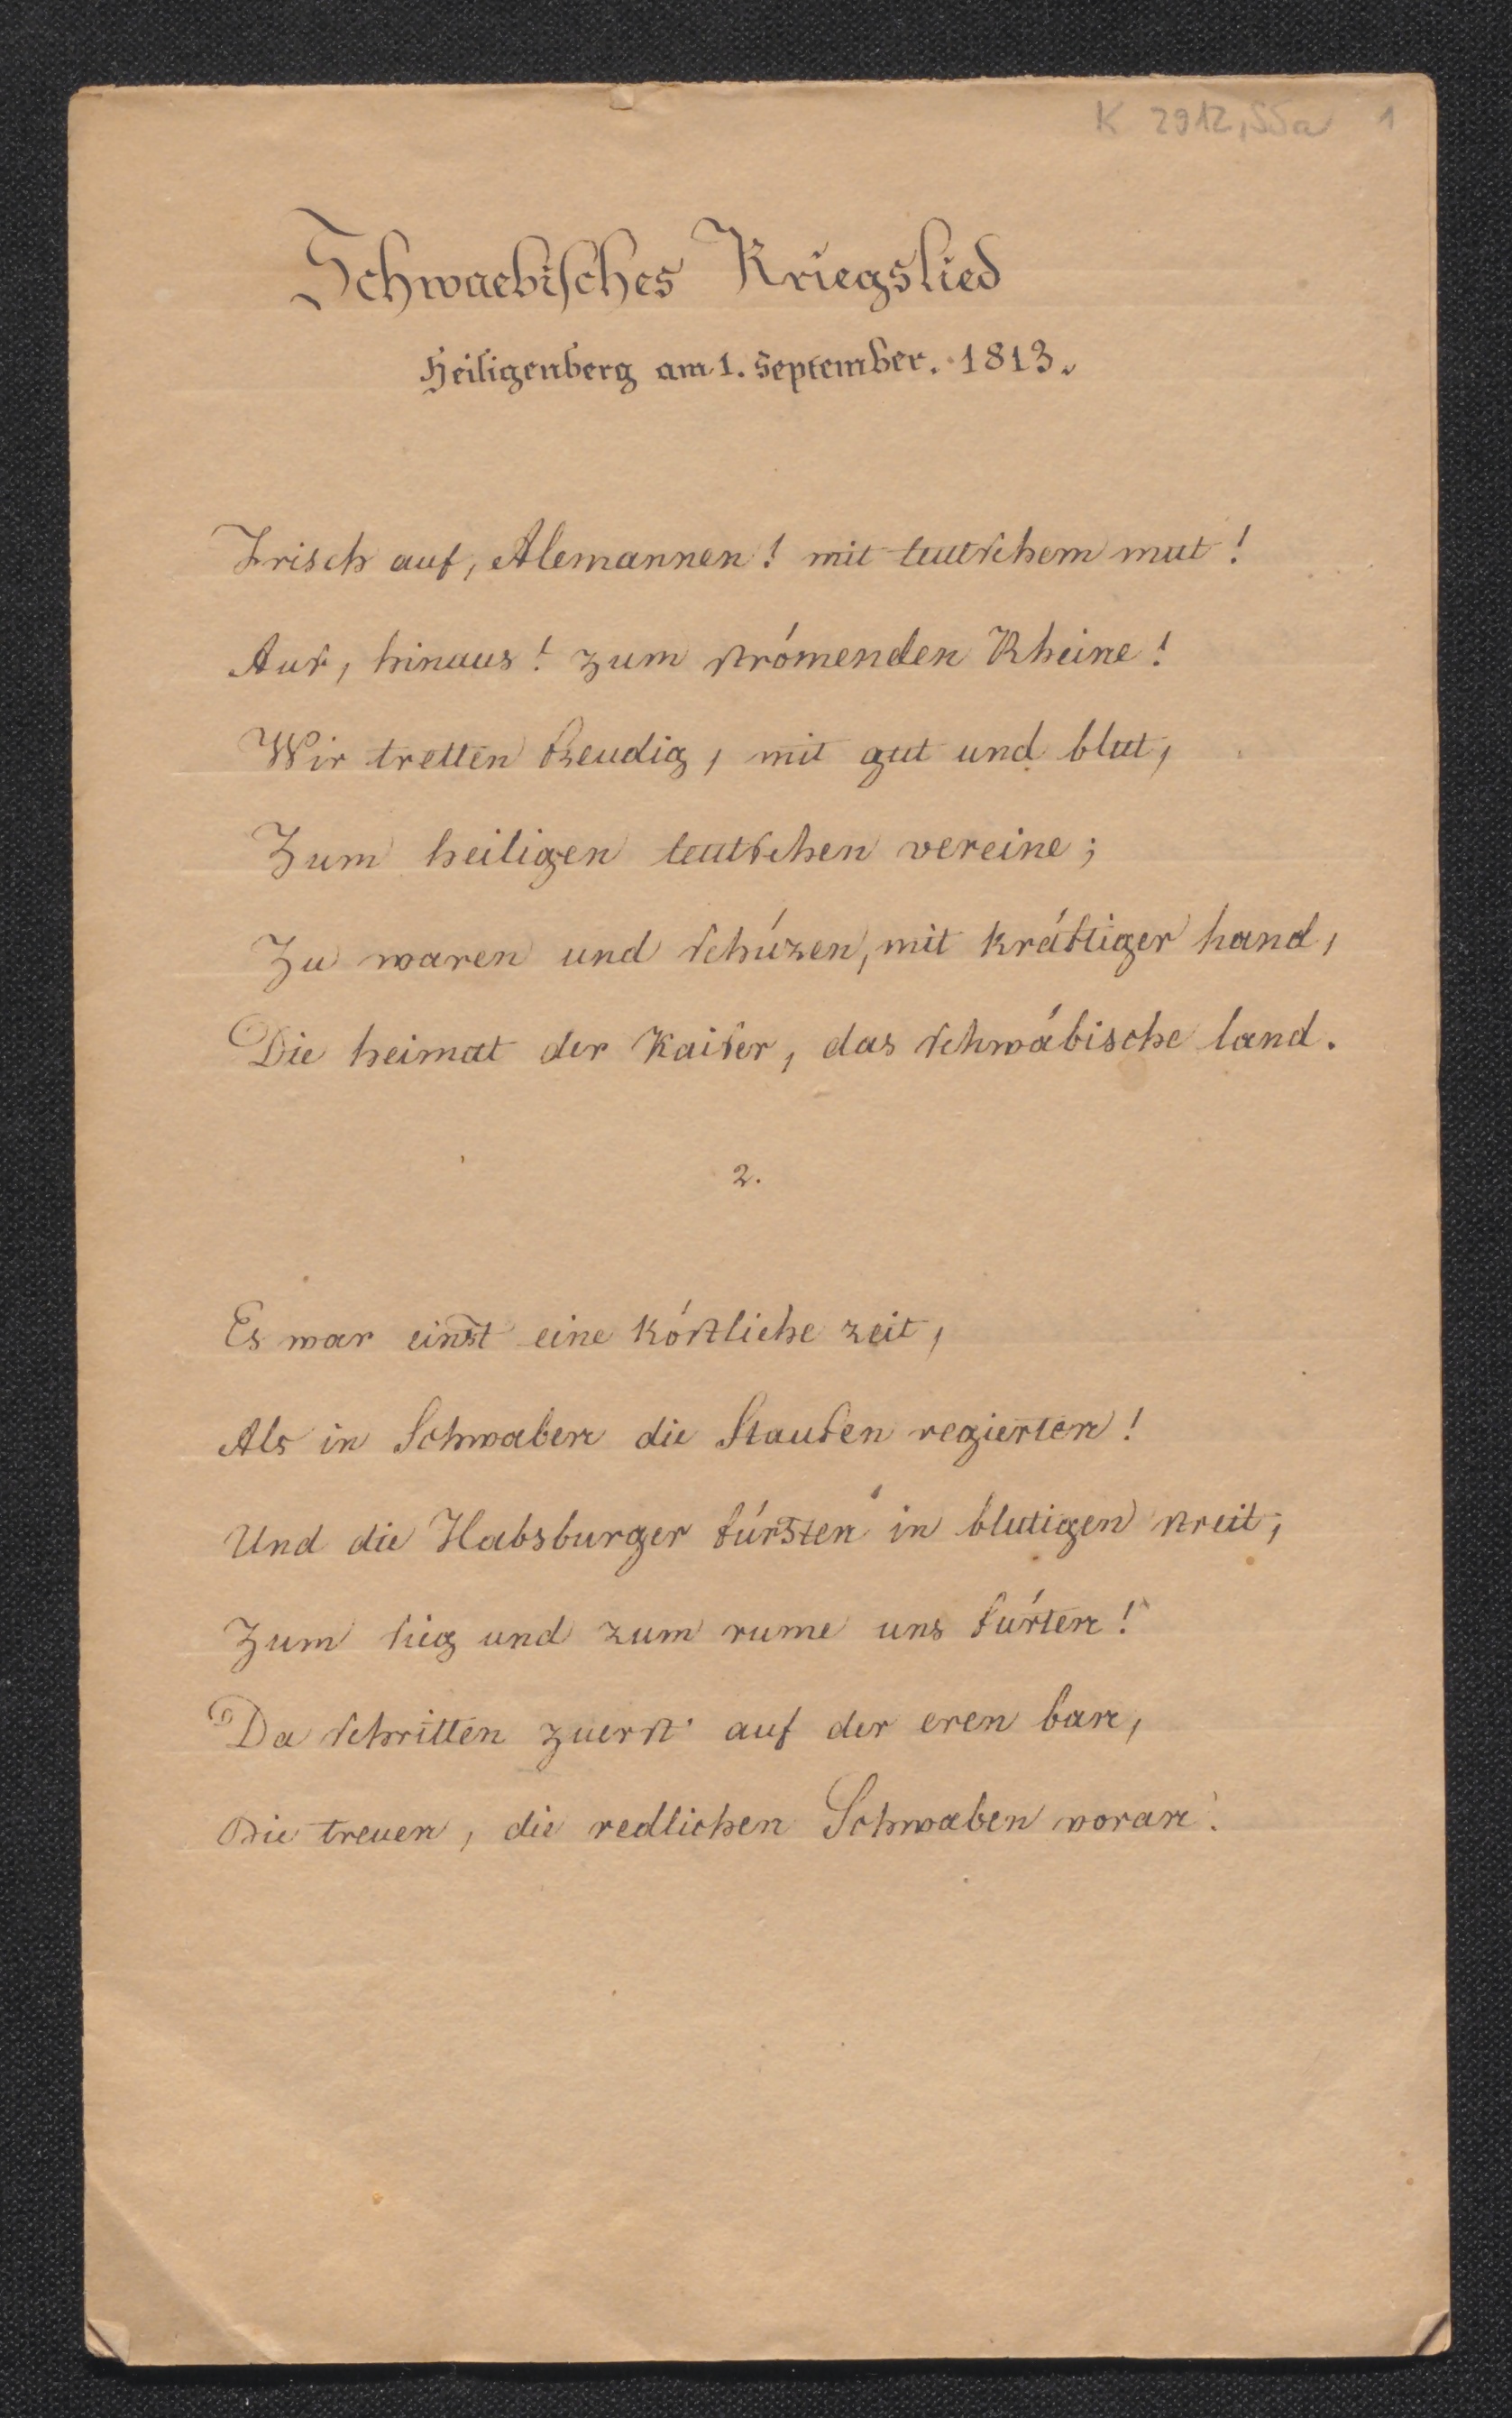 K 2912,55a 1
Schwaebisches Kriegslied
Heiligenberg am 1. September. 1813.
Frisch auf, Alemannen! mit teutschem mut!
Auf, hinaus! zum strómenden Rheine!
Wir tretten freudig, mit gut und blut,
Zum heiligen teutschen vereine;
Zu waren und schúzen, mit kráftiger hand,
Die heimat der Kaiser, das schwábische land.
2.
Es war einst eine kóstliche zeit,
Als in Schwaben die Staufen regierten!
Und die Habsburger fúrsten in blutigen streit,
Zum sieg und zum rume uns fúrten!
Da schritten zuerst auf der eren ban,
Die treuen, die redlichen Schwaben voran!